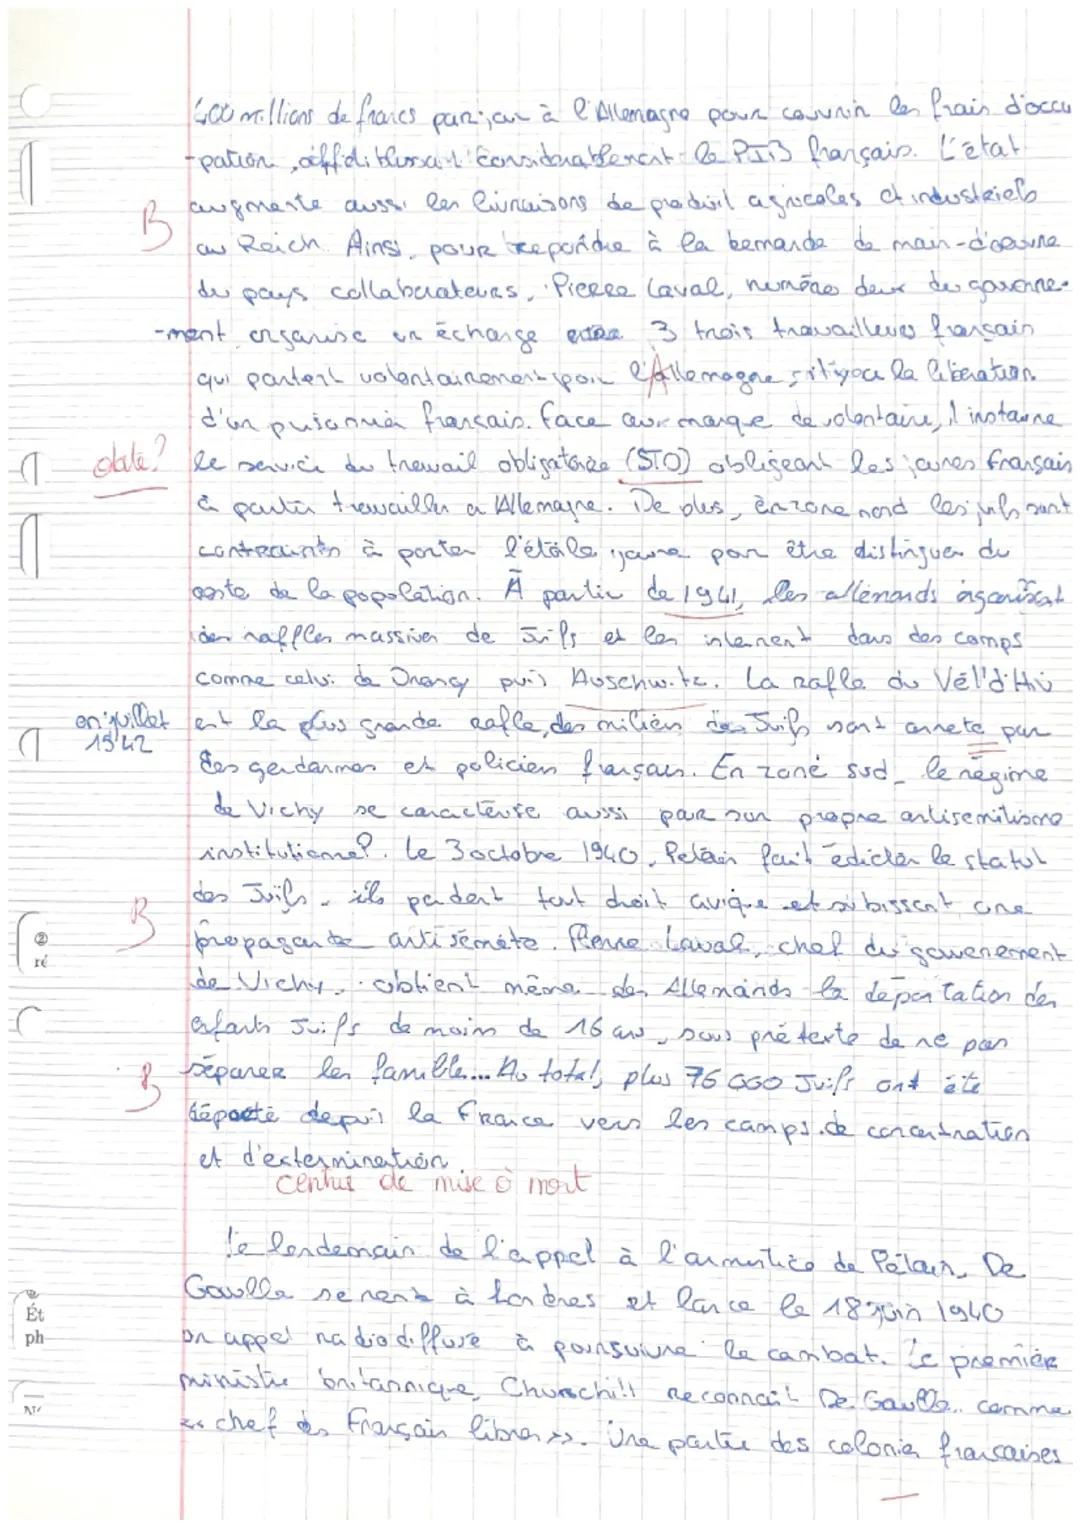 400 millions de francs par jour à l'Allemagne pour couvrir les frais d'occu
-pation, considerablement le PIB français. L'état
B augmente aussi les livraisons de produit agricoles et industriels
au Reich. Ainsi, pour repondre à la demande de main-d'oeuvre
du pays collaborateurs, Pierre Laval, numéro deux du gouverne-
-ment organise un échange entre 3 trois travailleurs français
qui partent volontairement pour l'Allemagne la libération
d'un prisonnier français. Face au manque de volontaire, instaure
date? le service du travail obligatoire (STO) obligeant les jeunes français
à partir travailler a Allemagne. De plus, en zone nord les juifs sont
contraints à porter l'étoile jaune pour être distinguer du
reste de la population. À partir de 1941, les allemands organisent
des raffles massives de Juifs et les internent dans des camps
comme celui de Drancy puis Auschwitz. La rafle du Vél'd'Hiv
en juillet 1942 est la plus grande rafle, des milliers des Juifs sont arreté par
des gendarmes et policiers français. En zone sud, le régime
de Vichy se caractérise aussi par son propre antisemitisme
institutionnel. Le 3 octobre 1940, Petain fait édicter le statut
des Juifs, ils perdent tout droit civique et subissent une
B propagande antisémite. Pierre Laval, chef du gouvernement
de Vichy, obtient même des Allemands la déportation des
enfants Juifs de moins de 16 ans, sous prétexte de ne pas
B séparer les familles... Au total, plus 76 000 Juifs ont été
déporté depuis la France vers les camps de concentration
et d'extermination
centres de mise à mort
Le lendemain de l'appel à l'armistice de Pétain, De
Gaulle se rend à Londres et lance le 18 juin 1940
un appel radiodiffusé à poursuivre le combat. Le premier
ministre britannique, Churchill reconnait De Gaulle comme
« chef des Français libres ». Une partie des colonies françaises
② 
ré
Ét
ph